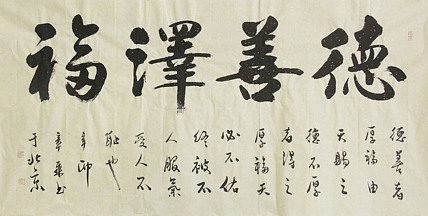 德善澤福
德善者
厚福由
天賜之
德不厚
者得之
厚福天
必不佑
終被不
人服氣
受人不
耻也
辛卯
書
于北京